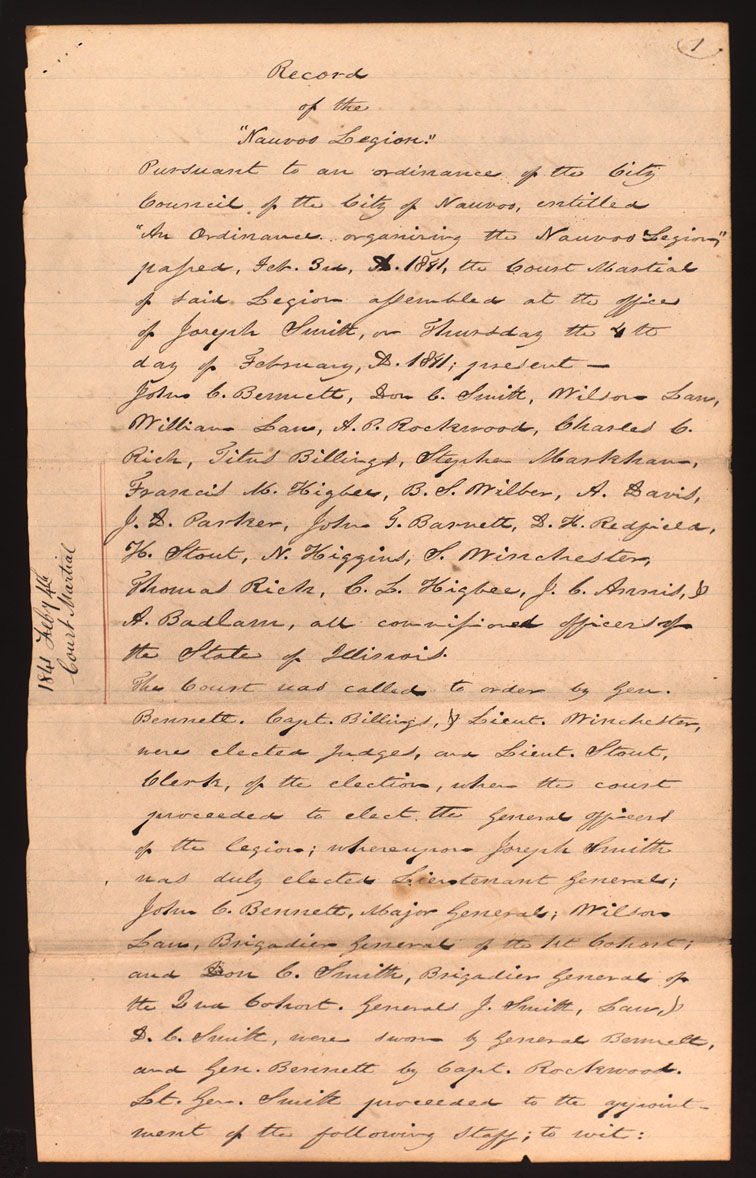 1
Record
of the
"Nauvoo Legion."
Pursuant to an ordinance of the City
Council of the City of Nauvoo, entitled
"An Ordinance organizing the Nauvoo Legion,"
passed, Feb. 3rd, A.D. 1841, the Court Martial
of said Legion assembled at the office
of Joseph Smith, on Thursday the 4th
day of February, A.D. 1841; present—
John C. Bennett, Don C. Smith, Wilson Law,
William Law, A. P. Rockwood, Charles C.
Rich, Titus Billings, Stephen Markham,
Francis M. Higbee, B. S. Wilber, A. Davis,
J. D. Parker, John G. Barnett, D. H. Redfield,
H. Stout, N. Higgins, S. Winchester,
Thomas Rich, C. L. Higbee, J. C. Annis, &
A. Badlam, all commissioned officers of
the State of Illinois.
The Court was called to order by Gen.
Bennett. Capt. Billings, & Lieut. Winchester,
were elected Judges, and Lieut. Stout,
Clerk, of the election, when the court
proceeded to elect the general officers
of the legion; whereupon Joseph Smith
was duly elected Lieutenant General;
John C. Bennett, Major General; Wilson
Law, Brigadier General of the 1st Cohort;
and Don C. Smith, Brigadier General of
the 2nd Cohort. Generals J. Smith, Law, &
D. C. Smith, were sworn by General Bennett,
and Gen. Bennett by Capt. Rockwood.
Lt. Gen. Smith proceeded to the appoint-
ment of the following staff; to wit:
1841 Feby 4th
Court Martial